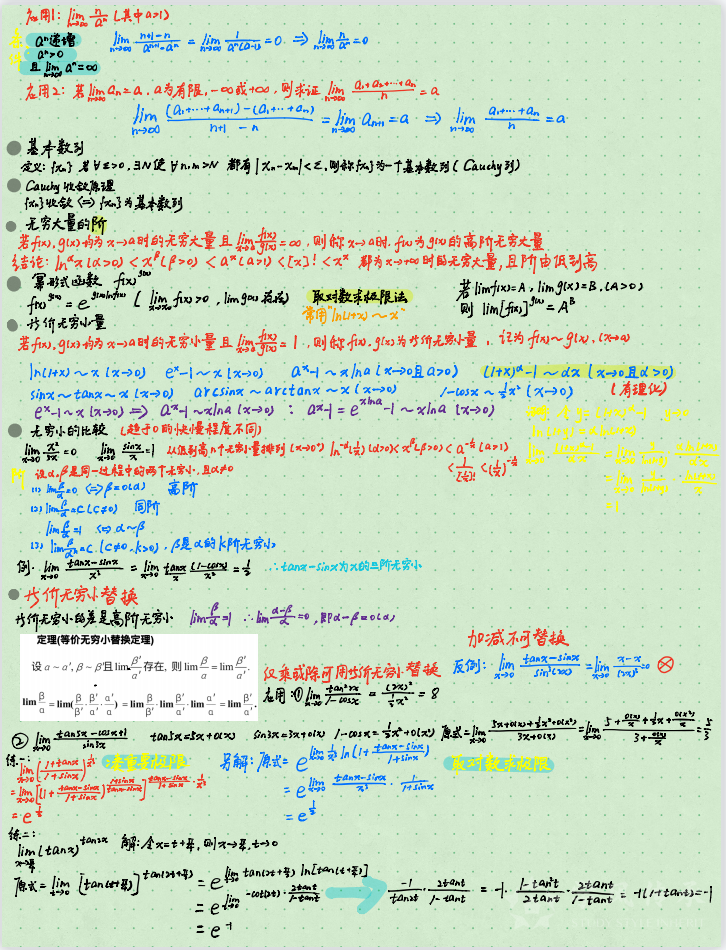 应用1: lim_{n→∞} n/aⁿ (其中a>1)
aⁿ递增
aⁿ>0
且 lim_{n→∞} aⁿ=∞
lim_{n→∞} (n+1-n)/(aⁿ⁺¹-aⁿ) = lim_{n→∞} 1/(aⁿ(a-1)) = 0 ⇒ lim_{n→∞} n/aⁿ=0
应用2: 若lim_{n→∞} aₙ=a, a为有限, -∞或+∞, 则求证 lim_{n→∞} (a₁+a₂+…+aₙ)/n = a
lim_{n→∞} ((a₁+…+aₙ₊₁)-(a₁+…+aₙ))/(n+1-n) = lim_{n→∞} aₙ₊₁=a ⇒ lim_{n→∞} (a₁+…+aₙ)/n = a
基本数列
定义: {xₙ} 若∀ε>0, ∃N使∀n,m>N 都有|xₙ-xₘ|<ε, 则称{xₙ}为一个基本数列(Cauchy列)
Cauchy收敛原理
{xₙ}收敛⇔{xₙ}为基本数列
无穷大量的阶
若f(x), g(x)均为x→a时的无穷大量且lim_{x→a} f(x)/g(x)=∞, 则称x→a时, f(x)为g(x)的高阶无穷大量
结论: lnᵅx(α>0)<xᵝ(β>0)<aˣ(a>1)<[x]!<xˣ 都为x→+∞时的无穷大量, 且阶由低到高
幂形式函数 f(x)^g(x)
f(x)^g(x) = e^(g(x)lnf(x)) (lim_{x→x₀} f(x)>0, lim g(x)存在)
取对数求极限法
常用"ln(1+x)~x"
若limf(x)=A, limg(x)=B, (A>0)
则 lim[f(x)]^g(x)=Aᴮ
等价无穷小量
若f(x), g(x)均为x→a时的无穷小量且lim_{x→a} f(x)/g(x)=1, 则称f(x), g(x)为等价无穷小量, 记为f(x)~g(x), (x→a)
ln(1+x)~x (x→0) eˣ-1~x (x→0) aˣ-1~xlna (x→0且a>0) (1+x)ᵅ-1~αx (x→0且α>0)
sinx~tanx~x (x→0) arcsinx~arctanx~x (x→0) 1-cosx~½x² (x→0) (有理化)
eˣ-1~x (x→0) ⇒ aˣ-1~xlna (x→0) : aˣ-1=e^(xlna)-1~xlna (x→0)
无穷小的比较 (趋于0的快慢程度不同)
lim_{x→0} x²/3x=0 lim_{x→0} sinx/x=1 从低到高n个无穷小量排列(x→0⁺) ln^(-α)(1/x)(α>0)<xᵝ(β>0)<a^(-1/x)(a>1)
<1/[1/x]!<(1/x)^(-1/x)
阶 设α,β是同一过程中的两个无穷小, 且α≠0
(1) lim β/α=0 ⇔β=o(α) 高阶
(2) lim β/α=C(C≠0) 同阶
lim β/α=1 ⇔α~β
(3) lim β/αᵏ=C(C≠0,k>0), β是α的k阶无穷小
例: lim_{x→0} (tanx-sinx)/x³ = lim_{x→0} tanx/x · (1-cosx)/x² = 1/2 ∴tanx-sinx为x的三阶无穷小
等价无穷小替换
等价无穷小的差是高阶无穷小 lim β/α=1 ∴lim (α-β)/α=0, 即α-β=o(α)
定理(等价无穷小替换定理)
设 α~α′, β~β′且lim β′/α′存在, 则 lim β/α = lim β′/α′.
lim β/α = lim(β/β′·β′/α′·α′/α) = lim β/β′·lim β′/α′·lim α′/α = lim β′/α′.
加减不可替换
反例: lim_{x→0} (tanx-sinx)/sin³(2x) = lim_{x→0} (x-x)/(2x)³=0 ⊗
仅乘或除可用等价无穷小替换
应用: ① lim_{x→0} tan²2x/(1-cosx) = (2x)²/(½x²) = 8
② lim_{x→0} (tan5x-cosx+1)/sin3x tan5x=5x+o(x) sin3x=3x+o(x) 1-cosx=½x²+o(x²) 原式=lim_{x→0} (5x+o(x)+½x²+o(x²))/(3x+o(x)) = lim_{x→0} (5+o(x)/x+½x+o(x²)/x)/(3+o(x)/x) = 5/3
练一:
lim_{x→0} ((1+tanx)/(1+sinx))^(1/x³)
= lim_{x→0} [(1+(tanx-sinx)/(1+sinx))^((1+sinx)/(tanx-sinx))]^((tanx-sinx)/(1+sinx)·1/x³)
= e^(1/2)
另解: 原式= e^(lim_{x→0} 1/x³ ln(1+(tanx-sinx)/(1+sinx)))
= e^(lim_{x→0} (tanx-sinx)/x³ · 1/(1+sinx))
= e^(1/2)
取对数求极限
练二:
lim_{x→π/4} (tanx)^(tan2x) 解: 令x=t+π/4, 则x→π/4, t→0
原式= lim_{t→0} [tan(t+π/4)]^(tan(2t+π/2)) = e^(lim_{t→0} tan(2t+π/2) ln[tan(t+π/4)])
= e^(lim_{t→0} -cot(2t)·2tant/(1-tant))
-1/tan2t · 2tant/(1-tant) = -1·(1-tan²t)/2tant · 2tant/(1-tant) = -1(1+tant)=-1
= e⁻¹